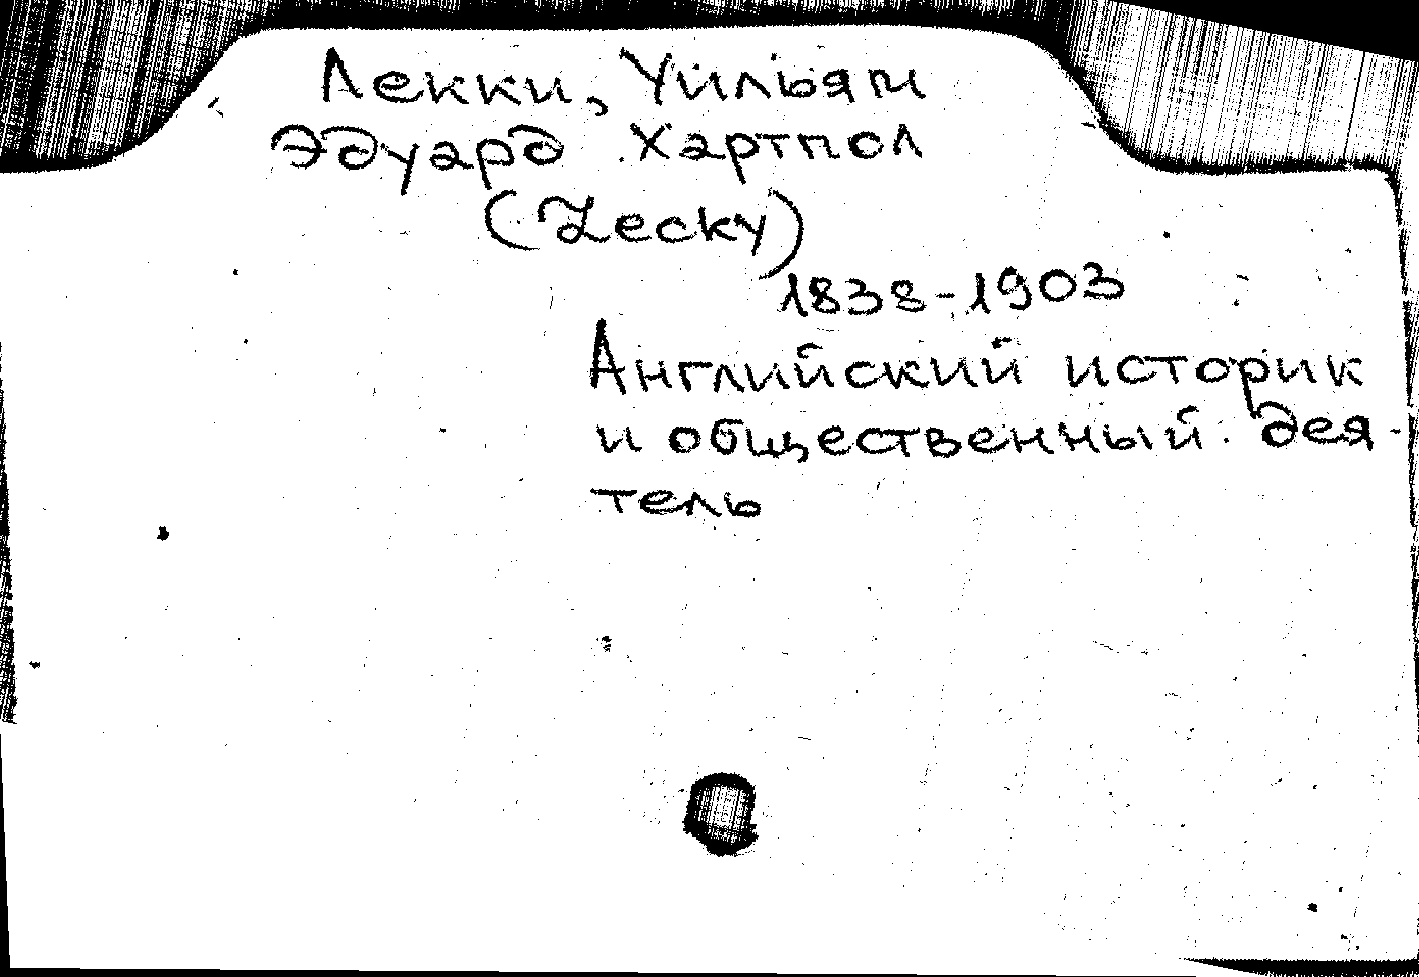 Лекки, Уильям
Эдуард Хартпол
(Lecky)
1838-1903
Английский историк
и общественный дея-
тель